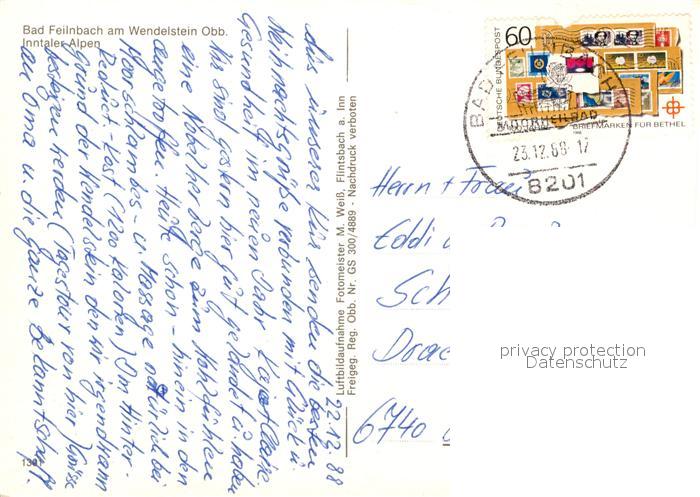 Bad Feilnbach am Wendelstein Obb.
Inntaler Alpen
22.12.88
Aus unserer Kur senden die besten
Weihnachtsgrüße verbunden mit Glück u.
Gesundheit im neuen Jahr
Wir sind gestern hier gut gelandet u. haben
eine Nobelherberge zum Wohlfühlen
angetroffen. Heute schon - hinein in den
Moorschlamm - u. Massage natürlich bei
Reduct. Kost (1200 Kalorien) Im Hinter-
grund der Wendelstein den wir irgendwann
besteigen werden (Tagestour von hier) Grüsse
an Oma u. die ganze Bekanntschaft.
Luftbildaufnahme Fotomeister M. Weiß, Flintsbach a. Inn
Freigeg. Reg. Obb. Nr. GS 300/4889 - Nachdruck verboten
DEUTSCHE BUNDESPOST
60
BRIEFMARKEN FÜR BETHEL
BAD
MOORHEILBAD
23.12.88-17
8201
Herrn + Frau
Eddi
Sch
6740
privacy protection
Datenschutz